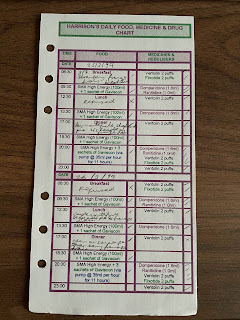 HARRISON'S DAILY FOOD, MEDICINE & DRUG
CHART
TIME FOOD MEDICINES &
NEBULISERS
DATE
08:00 Breakfast Ventolin 2 puffs
Flixotide 2 puffs
09:30 SMA High Energy (100ml) Domperidone (1.0ml)
+ 1 sachet of Gaviscon Ranitidine (1.0ml)
12:00 Lunch Ventolin 2 puffs
Refused
13:30 SMA High Energy (100ml) Domperidone (1.0ml)
+ 1 sachet of Gaviscon
17:00 Dinner Ventolin 2 puffs
18:30 SMA High Energy (100ml) Domperidone (1.0ml)
+ 1 sachet of Gaviscon
20:00 SMA High Energy + 3 Domperidone (1.0ml)
sachets of Gaviscon (via Ranitidine (1.0ml)
pump @ 35ml per hour Ventolin 2 puffs
for 11 hours) Flixotide 2 puffs
23:00 Ventolin 2 puffs
DATE
08:00 Breakfast Ventolin 2 puffs
Refused Flixotide 2 puffs
09:30 SMA High Energy (100ml) Domperidone (1.0ml)
+ 1 sachet of Gaviscon Ranitidine (1.0ml)
12:00 Lunch Ventolin 2 puffs
13:30 SMA High Energy (100ml) Domperidone (1.0ml)
+ 1 sachet of Gaviscon
17:00 Dinner Ventolin 2 puffs
18:30 SMA High Energy (100ml) Domperidone (1.0ml)
+ 1 sachet of Gaviscon
20:00 SMA High Energy + 3 Domperidone (1.0ml)
sachets of Gaviscon (via Ranitidine (1.0ml)
pump @ 35ml per hour Ventolin 2 puffs
for 11 hours) Flixotide 2 puffs
23:00 Ventolin 2 puffs